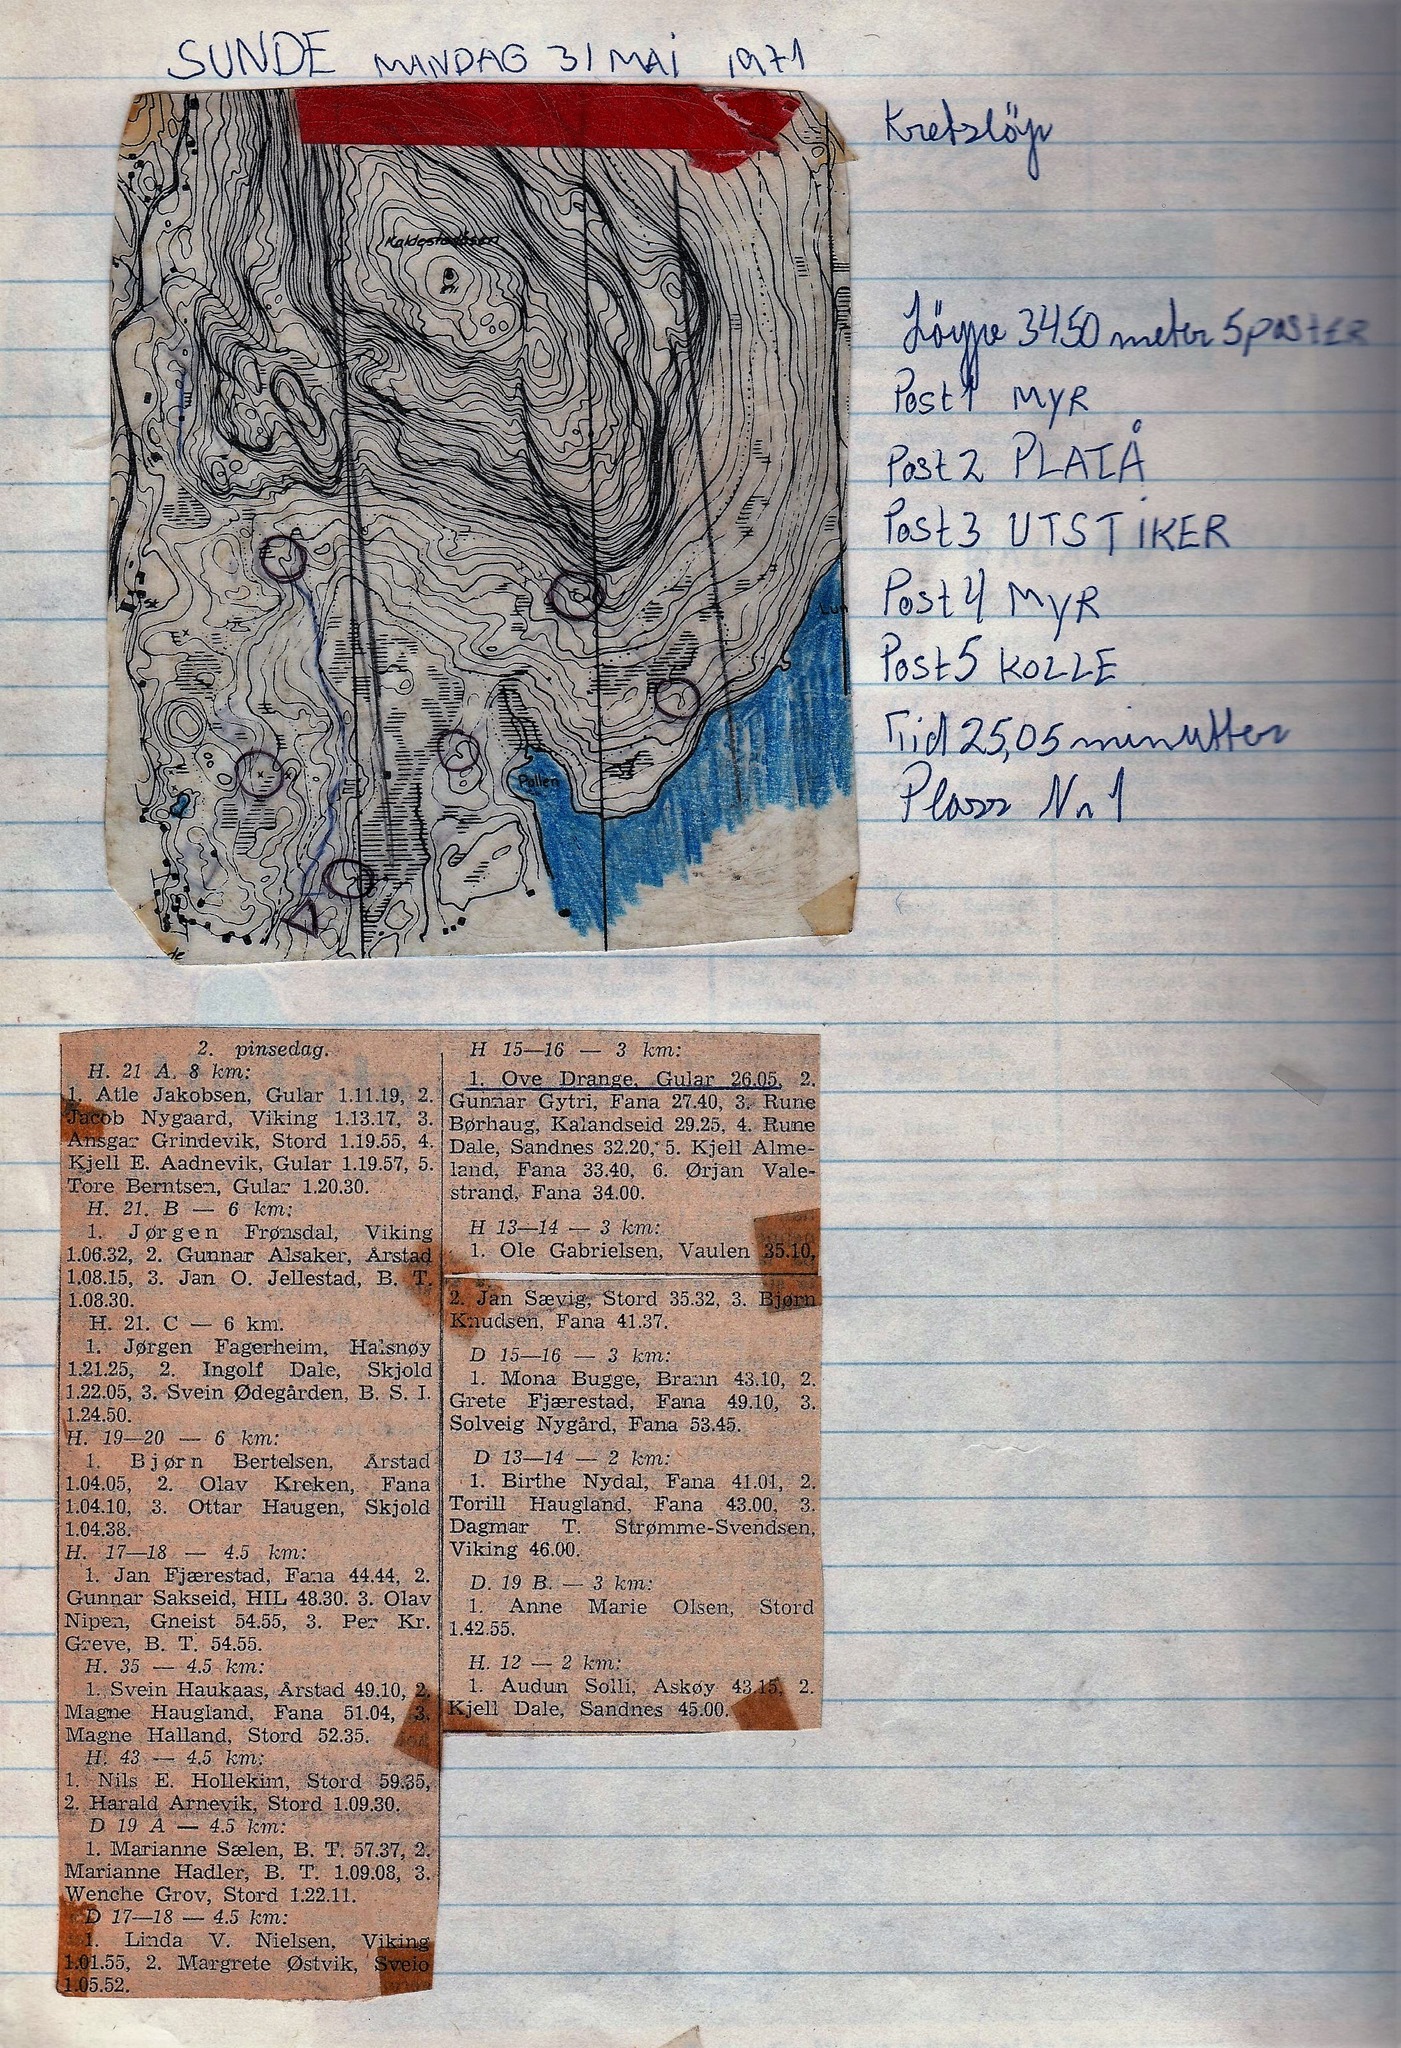 SUNDE MANDAG 31 MAI 1971
Kretsløp
Kaldestadåsen
Pollen
Løype 3450 meter 5 POSTER
Post 1 MYR
Post 2 PLATÅ
Post 3 UTSTIKER
Post 4 MYR
Post 5 KOLLE
Tid 25,05 minutter
Plass Nr 1
2. pinsedag.
H. 21 A. 8 km:
1. Atle Jakobsen, Gular 1.11.19, 2.
Jacob Nygaard, Viking 1.13.17, 3.
Ansgar Grindevik, Stord 1.19.55, 4.
Kjell E. Aadnevik, Gular 1.19.57, 5.
Tore Berntsen, Gular 1.20.30.
H. 21. B — 6 km:
1. Jørgen Frønsdal, Viking
1.06.32, 2. Gunnar Alsaker, Årstad
1.08.15, 3. Jan O. Jellestad, B. T.
1.08.30.
H. 21. C — 6 km.
1. Jørgen Fagerheim, Halsnøy
1.21.25, 2. Ingolf Dale, Skjold
1.22.05, 3. Svein Ødegården, B. S. I.
1.24.50.
H. 19—20 — 6 km:
1. Bjørn Bertelsen, Årstad
1.04.05, 2. Olav Kreken, Fana
1.04.10, 3. Ottar Haugen, Skjold
1.04.38.
H. 17—18 — 4.5 km:
1. Jan Fjærestad, Fana 44.44, 2.
Gunnar Sakseid, HIL 48.30. 3. Olav
Nipen, Gneist 54.55, 3. Per Kr.
Greve, B. T. 54.55.
H. 35 — 4.5 km:
1. Svein Haukaas, Årstad 49.10, 2.
Magne Haugland, Fana 51.04, 3.
Magne Halland, Stord 52.35.
H. 43 — 4.5 km:
1. Nils E. Hollekim, Stord 59.35,
2. Harald Arnevik, Stord 1.09.30.
D 19 A — 4.5 km:
1. Marianne Sælen, B. T. 57.37, 2.
Marianne Hadler, B. T. 1.09.08, 3.
Wenche Grov, Stord 1.22.11.
D 17—18 — 4.5 km:
1. Linda V. Nielsen, Viking
1.01.55, 2. Margrete Østvik, Sveio
1.05.52.
H 15—16 — 3 km:
1. Ove Drange, Gular 26.05, 2.
Gunnar Gytri, Fana 27.40, 3. Rune
Børhaug, Kalandseid 29.25, 4. Rune
Dale, Sandnes 32.20, 5. Kjell Alme-
land, Fana 33.40, 6. Ørjan Vale-
strand, Fana 34.00.
H 13—14 — 3 km:
1. Ole Gabrielsen, Vaulen 35.10,
2. Jan Sævig, Stord 35.32, 3. Bjørn
Knudsen, Fana 41.37.
D 15—16 — 3 km:
1. Mona Bugge, Brann 43.10, 2.
Grete Fjærestad, Fana 49.10, 3.
Solveig Nygård, Fana 53.45.
D 13—14 — 2 km:
1. Birthe Nydal, Fana 41.01, 2.
Torill Haugland, Fana 43.00, 3.
Dagmar T. Strømme-Svendsen,
Viking 46.00.
D. 19 B. — 3 km:
1. Anne Marie Olsen, Stord
1.42.55.
H. 12 — 2 km:
1. Audun Solli, Askøy 43.15, 2.
Kjell Dale, Sandnes 45.00.